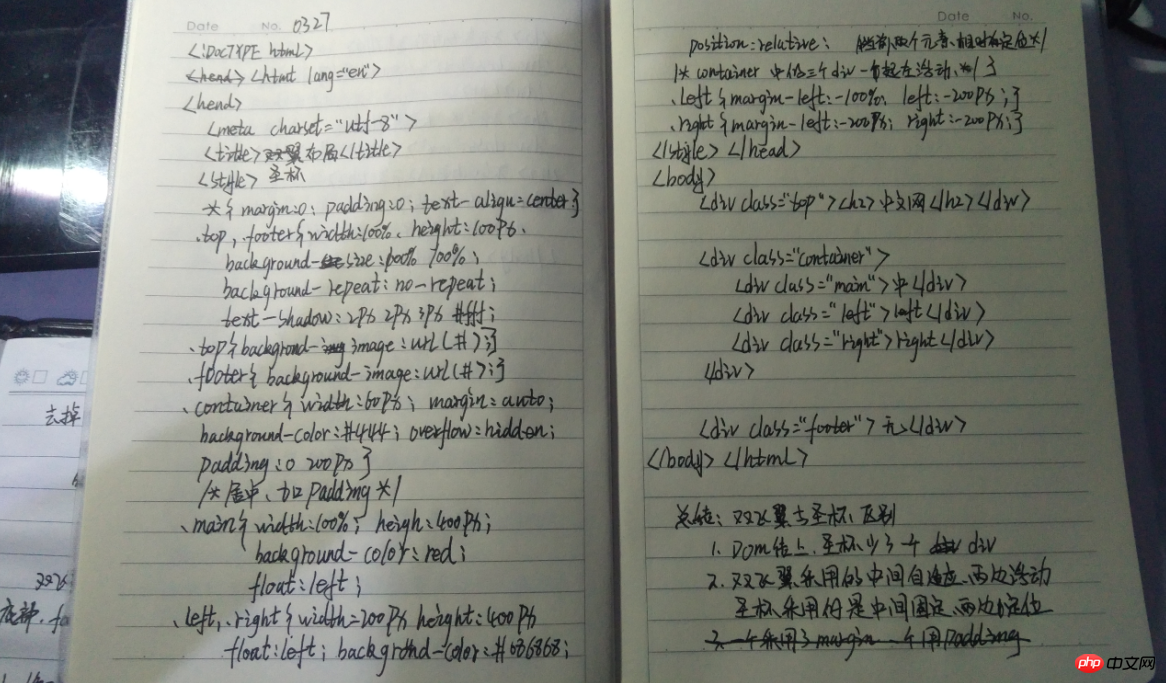 Date No. 0327
<!DOCTYPE html>
<head> <html lang="en">
<head>
<meta charset="utf-8">
<title>双翼布局</title>
<style> 圣杯
*{margin:0; padding:0; text-align:center}
.top, .footer{width:100%; height:100px;
background-size:100% 100%;
background-repeat:no-repeat;
text-shadow:2px 2px 3px #fff;
.top{background-img image:url(#);}
.footer{background-image:url(#);}
.container{width:60px; margin:auto;
background-color:#444; overflow:hidden;
padding:0 200px}
/*居中、加padding*/
.main{width:100%; heigh:400px;
background-color:red;
float:left;
.left, .right{width=200px height:400px
float:left; background-color:#686868;
去掉
双飞
底部.
Date No.
position:relative; 两个元素 相对定位*/
/*container 中的三个div一起左浮动*/}
.left{margin-left:-100%; left:-200px;}
.right{margin-left:-200px; right:-200px;}
</style></head>
<body>
<div class="top"><h2>中文网</h2></div>
<div class="container">
<div class="main">中</div>
<div class="left">left</div>
<div class="right">right</div>
</div>
<div class="footer">元</div>
</body></html>
总结: 双飞翼与圣杯区别
1. Dom结上、圣杯少了一个 div
2. 双飞翼采用的中间自适应、两边浮动
圣杯采用的是中间固定、两边定位
3. 一个采用了margin 一个用padding
php 中文网